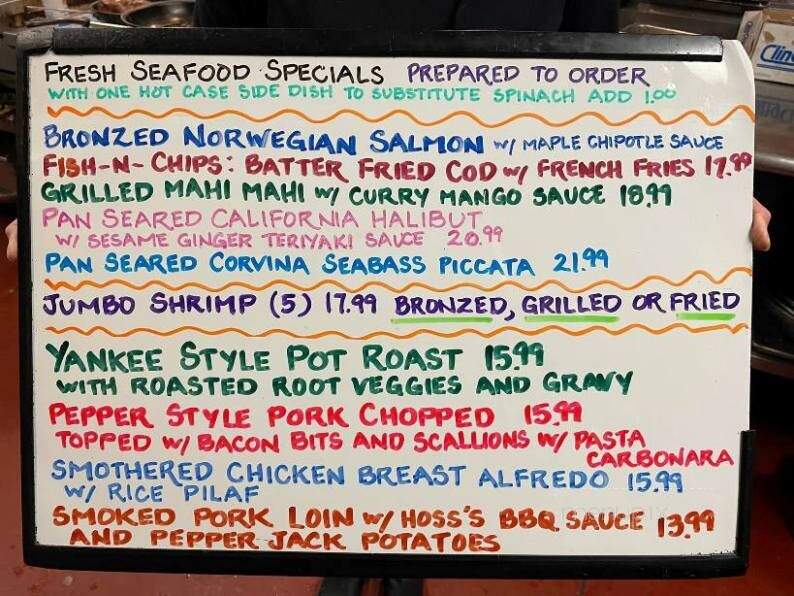 FRESH SEAFOOD SPECIALS PREPARED TO ORDER
WITH ONE HOT CASE SIDE DISH TO SUBSTITUTE SPINACH ADD 1.00
BRONZED NORWEGIAN SALMON W/ MAPLE CHIPOTLE SAUCE
FISH-N-CHIPS: BATTER FRIED COD W/ FRENCH FRIES 17.99
GRILLED MAHI MAHI W/ CURRY MANGO SAUCE 18.99
PAN SEARED CALIFORNIA HALIBUT
W/ SESAME GINGER TERIYAKI SAUCE 20.99
PAN SEARED CORVINA SEABASS PICCATA 21.99
JUMBO SHRIMP (5) 17.99 BRONZED, GRILLED OR FRIED
YANKEE STYLE POT ROAST 15.99
WITH ROASTED ROOT VEGGIES AND GRAVY
PEPPER STYLE PORK CHOPPED 15.99
TOPPED W/ BACON BITS AND SCALLIONS W/ PASTA
CARBONARA
SMOTHERED CHICKEN BREAST ALFREDO 15.99
W/ RICE PILAF
SMOKED PORK LOIN W/ HOSS'S BBQ SAUCE 13.99
AND PEPPER JACK POTATOES